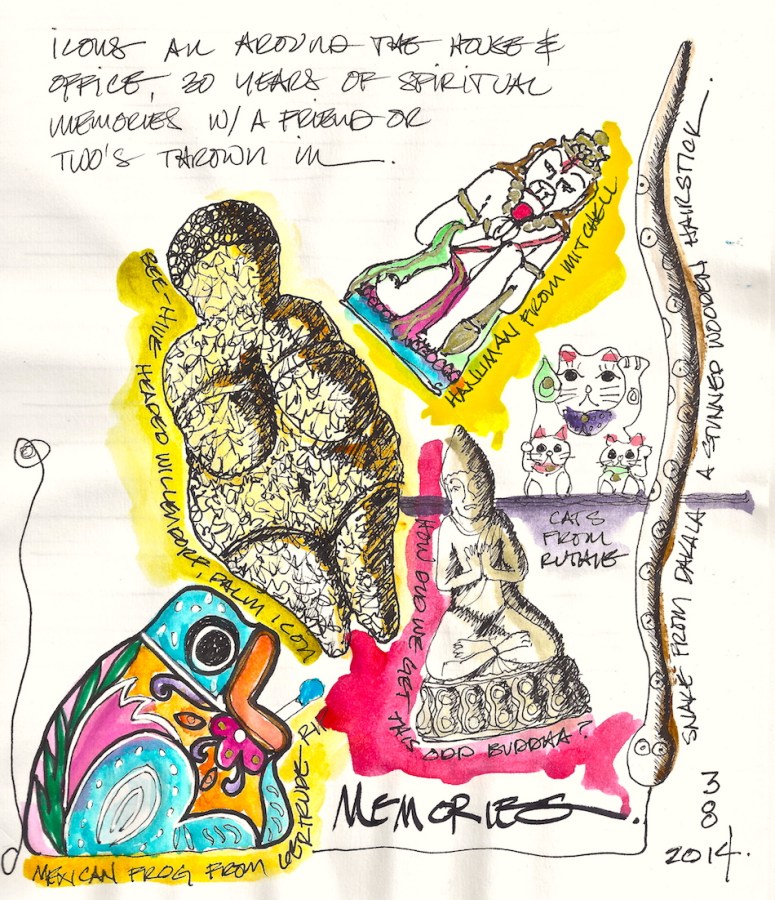 ICONS ALL AROUND THE HOUSE &
OFFICE, 30 YEARS OF SPIRITUAL
MEMORIES W/ A FRIEND OR
TWO'S THROWN IN.
BEE-HIVE HEADED WILLENDORF, PALM ICON
HANUMAN FROM MITCHELL
CATS
FROM
RUTHIE
SNAKE FROM DAKALA A STUNNED WOODEN HAIRSTICK.
HOW DID WE GET THIS ODD BUDDHA?
MEXICAN FROG FROM GERTRUDE
MEMORIES.
3
8
2014.